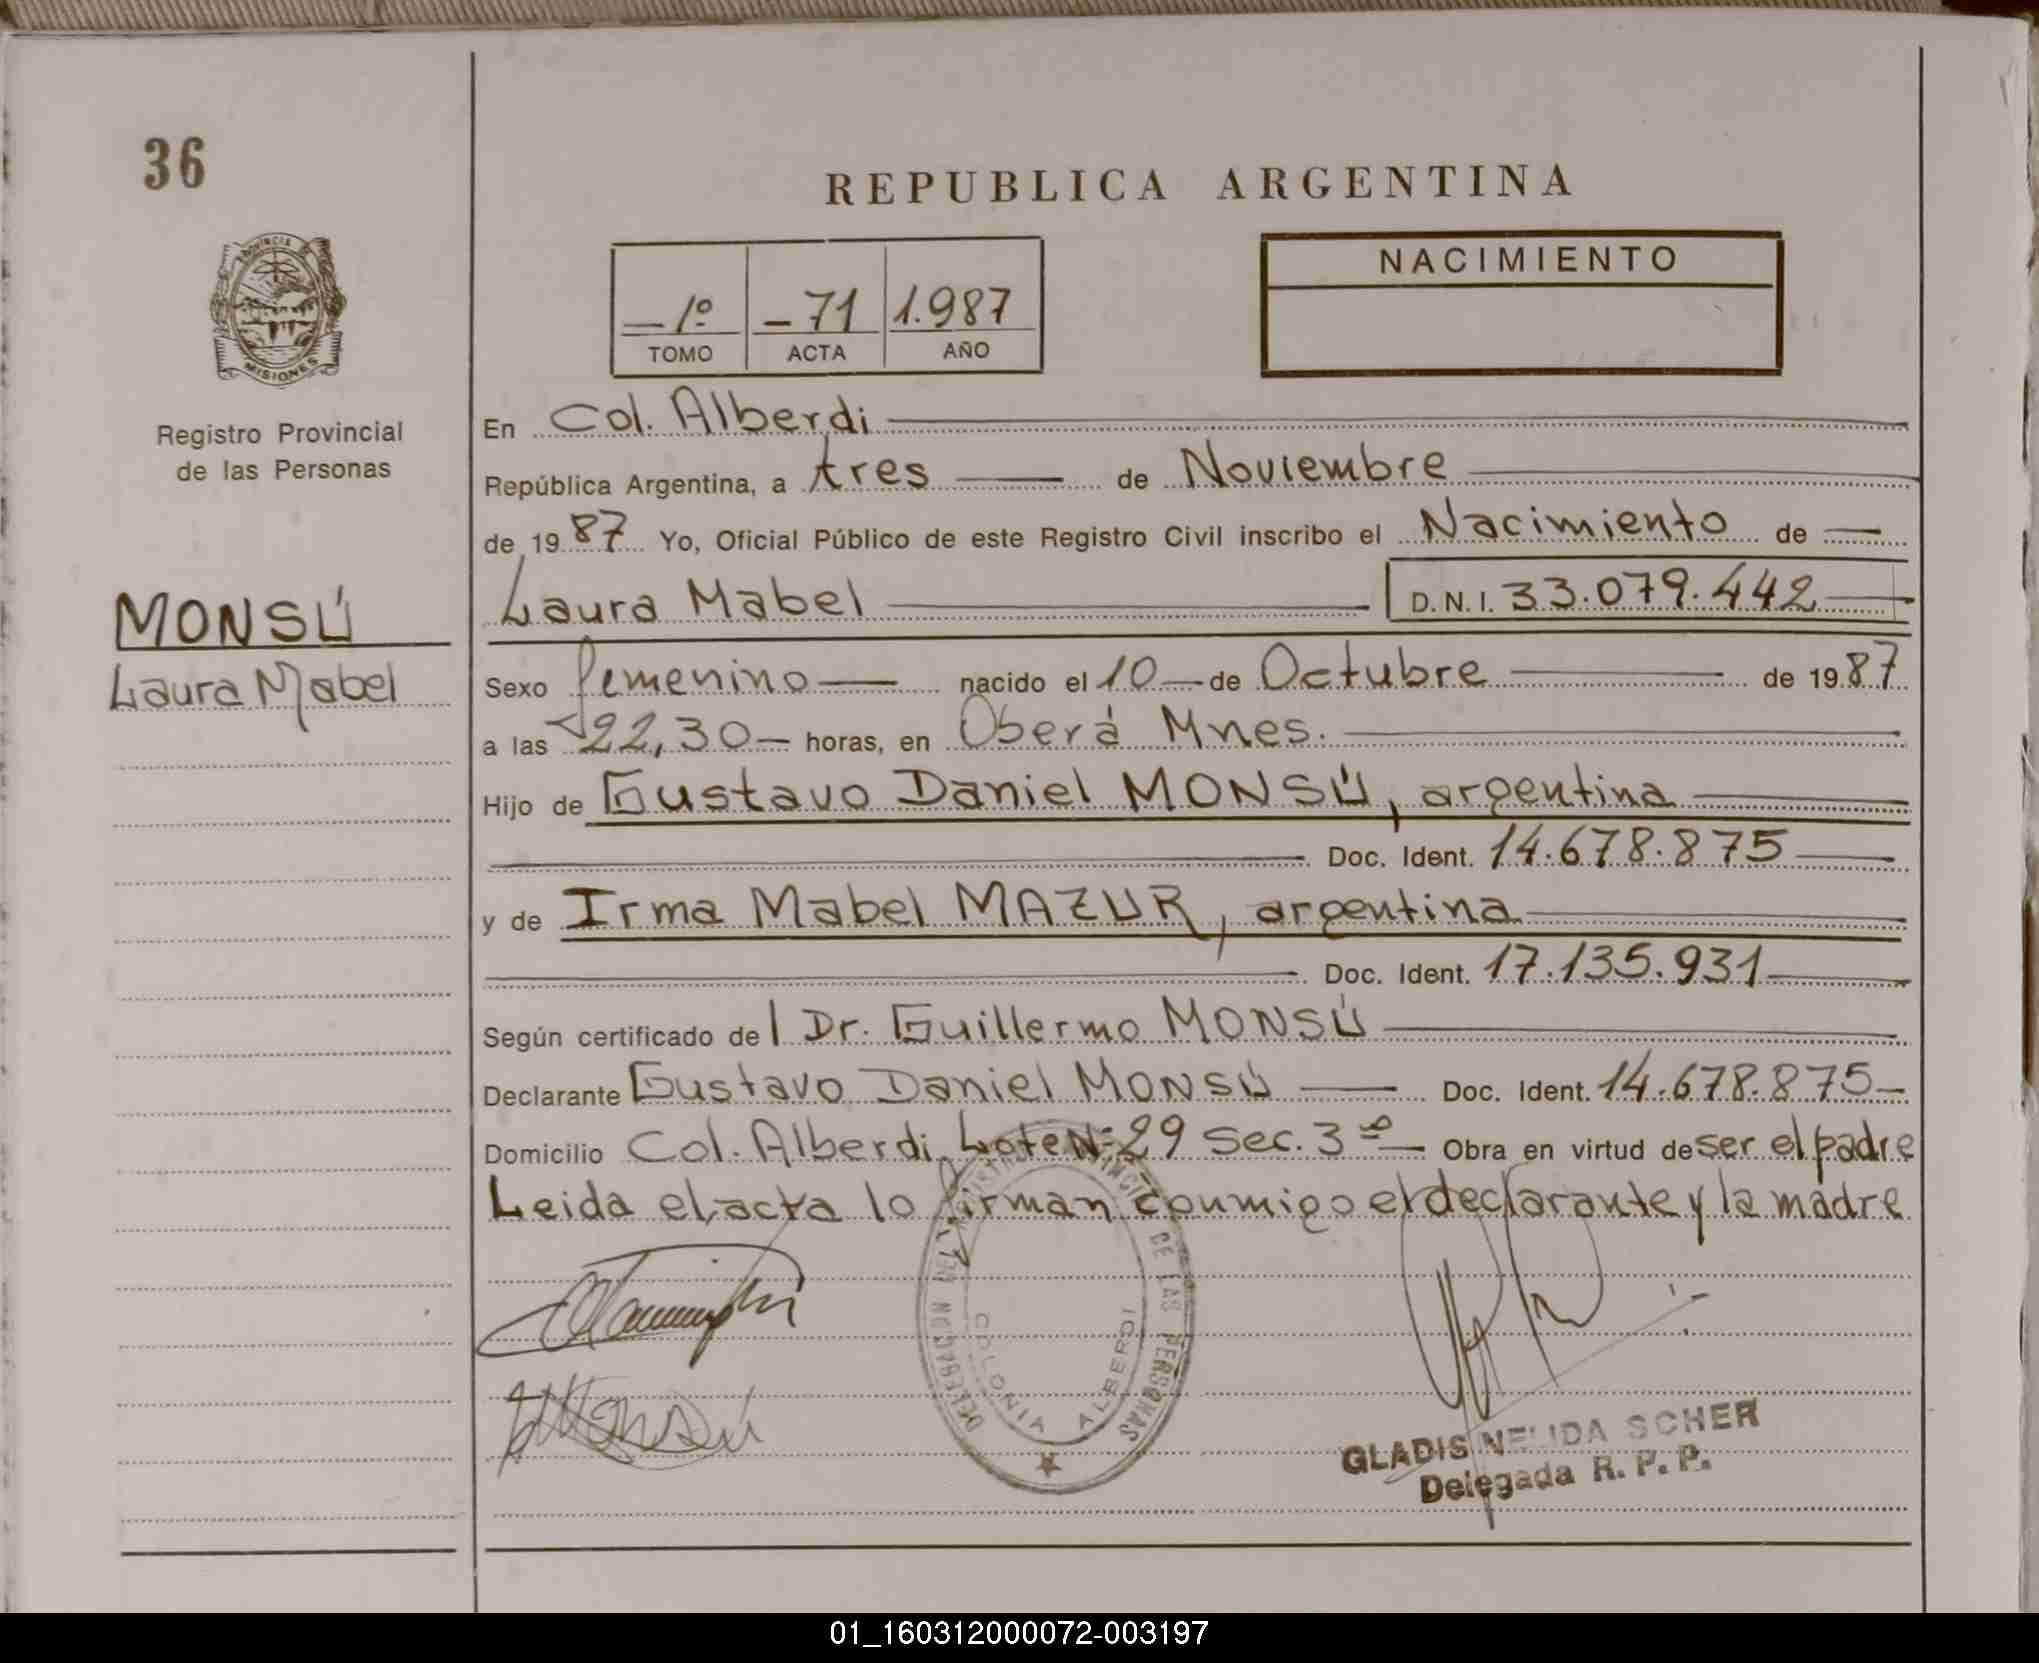 36
REPUBLICA ARGENTINA
PROVINCIA
MISIONES
Registro Provincial
de las Personas
MONSÚ
Laura Mabel
1º 71 1.987
TOMO ACTA AÑO
NACIMIENTO
En Col. Alberdi
República Argentina, a tres de Noviembre
de 1987 Yo, Oficial Público de este Registro Civil inscribo el Nacimiento de
Laura Mabel D.N.I. 33.079.442
Sexo femenino nacido el 10 de Octubre de 1987
a las 22,30 horas, en Oberá Mnes.
Hijo de Gustavo Daniel MONSÚ, argentina
Doc. Ident. 14.678.875
y de Irma Mabel MAZUR, argentina
Doc. Ident. 17.135.931
Según certificado del Dr. Guillermo MONSÚ
Declarante Gustavo Daniel MONSÚ Doc. Ident. 14.678.875
Domicilio Col. Alberdi Lote Nº 29 Sec. 3º Obra en virtud de ser el padre
Leida el acta lo firman conmigo el declarante y la madre
DE LAS PERSONAS
COLONIA ALBERDI
Monsú
GLADIS NELIDA SCHER
Delegada R. P. P.
01_160312000072-003197